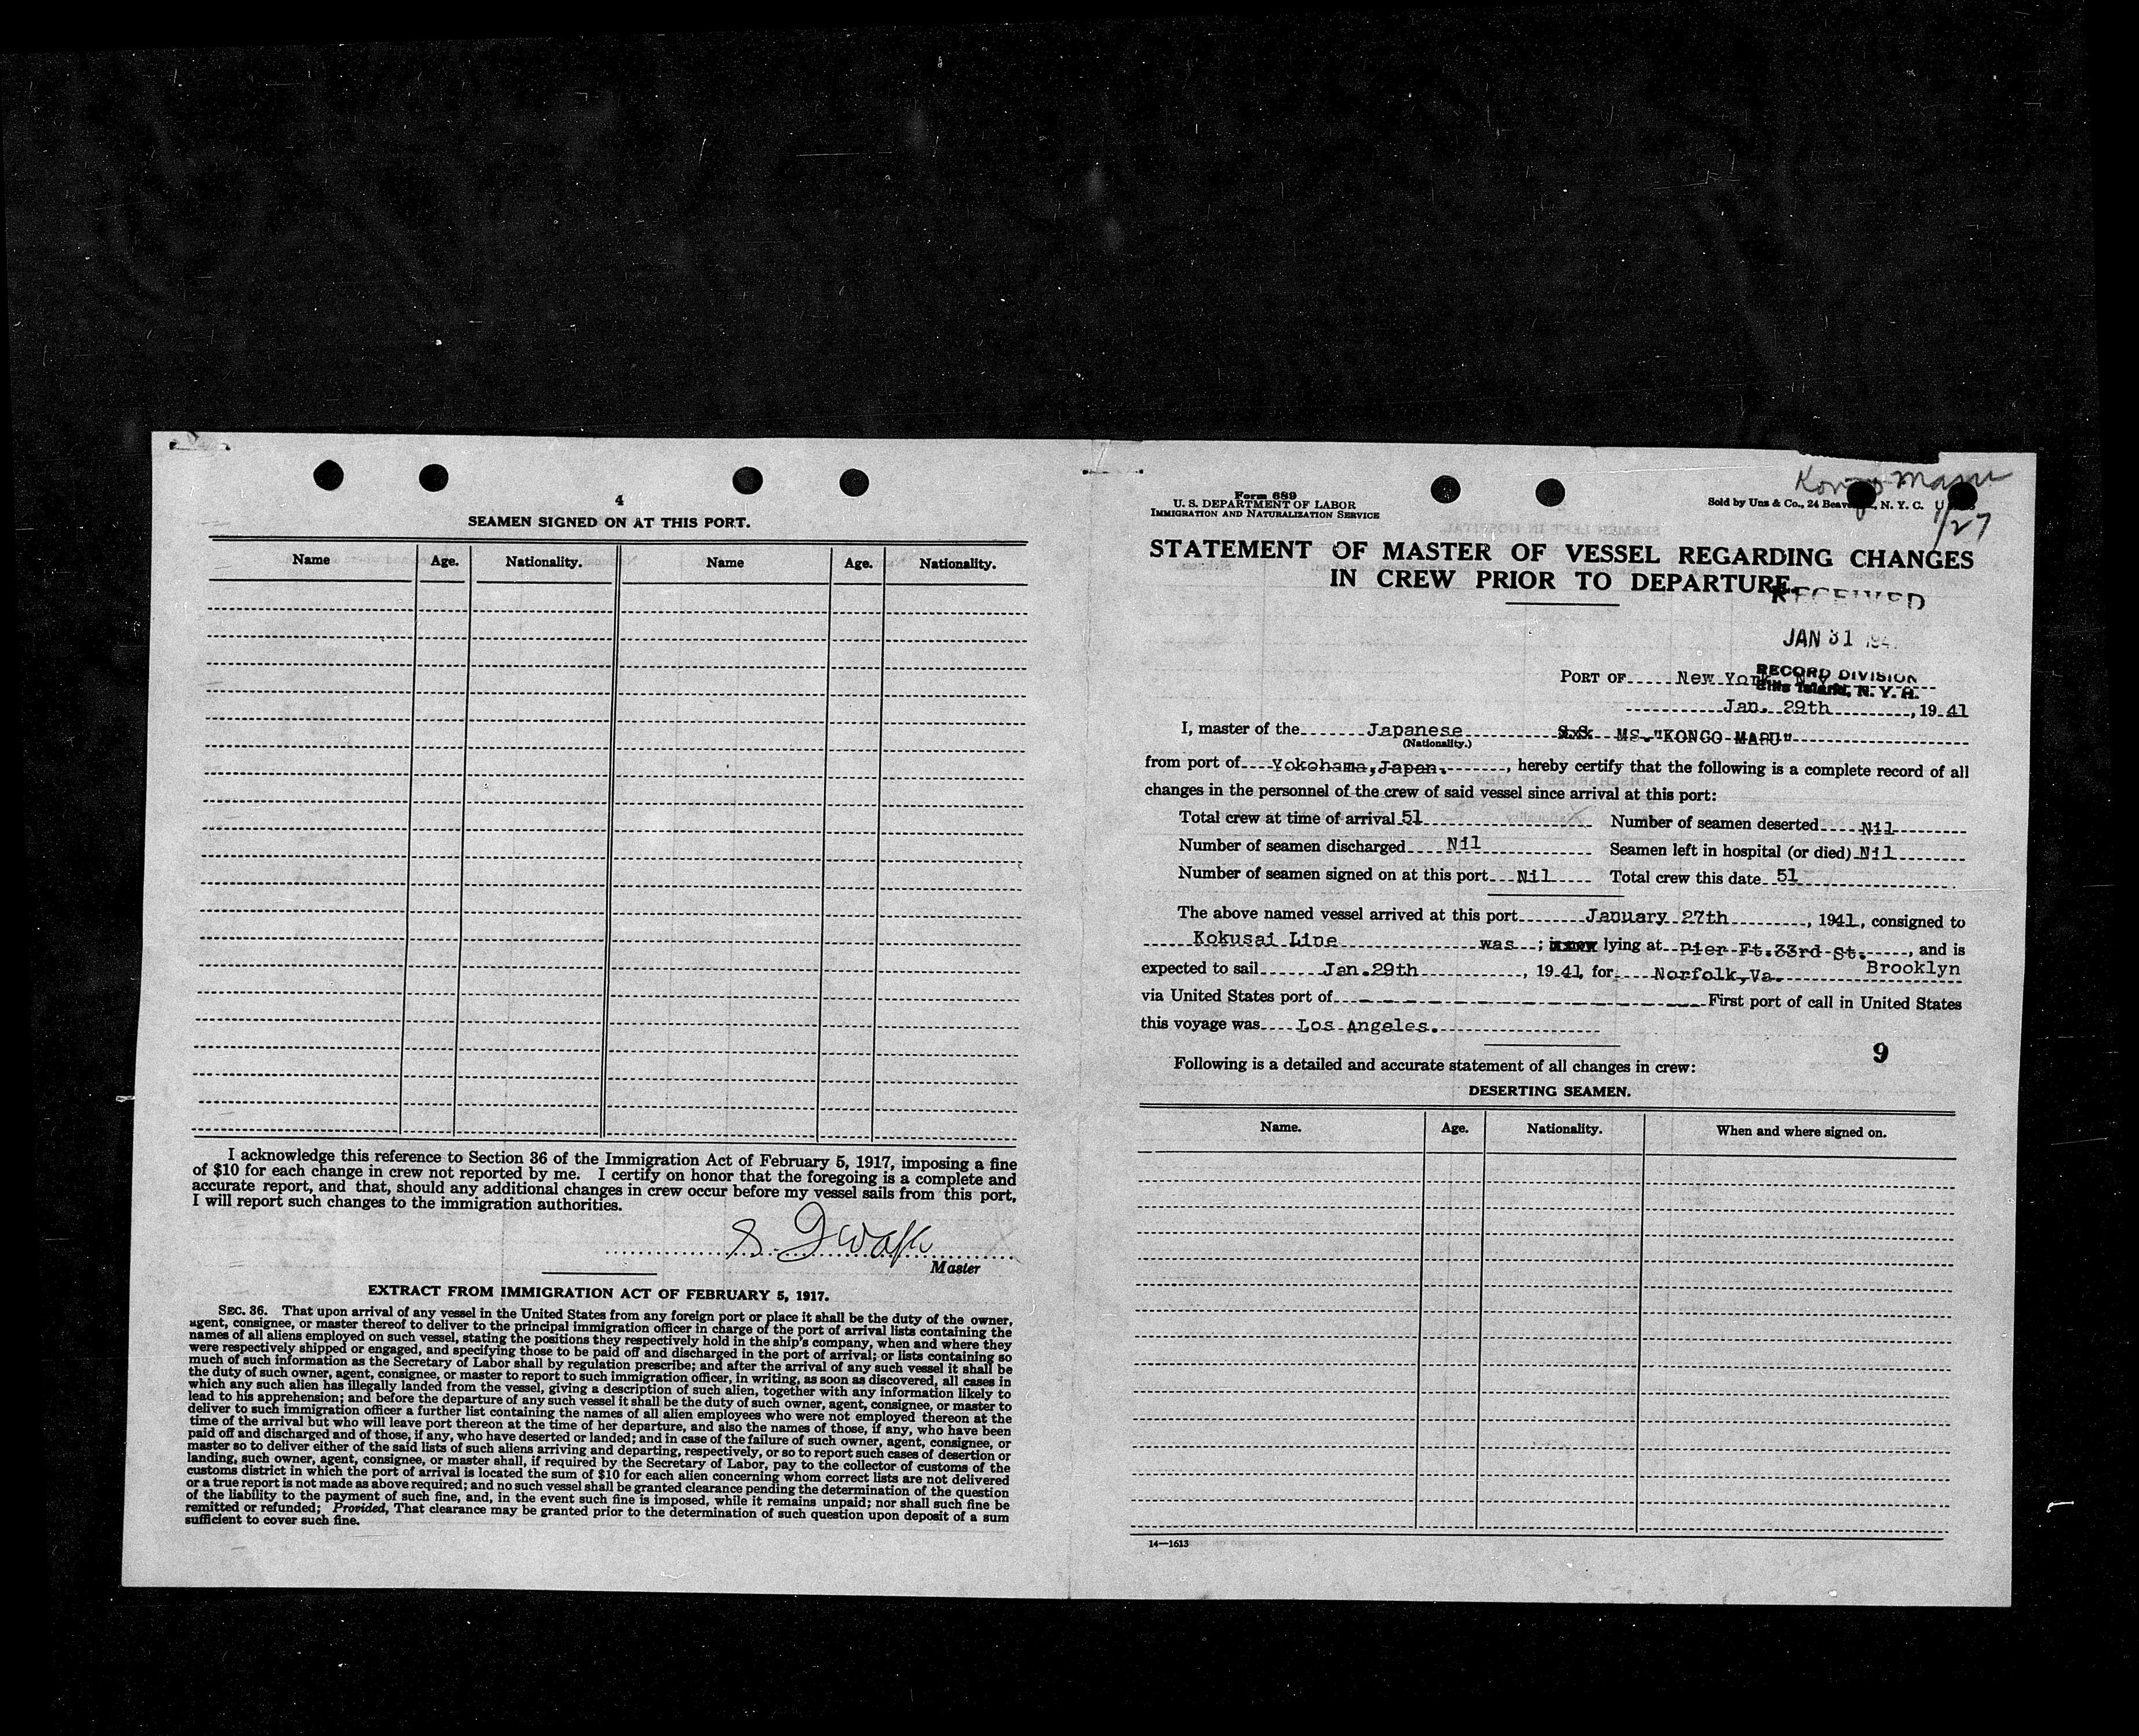 4
SEAMEN SIGNED ON AT THIS PORT.
Name Age. Nationality. Name Age. Nationality.
I acknowledge this reference to Section 36 of the Immigration Act of February 5, 1917, imposing a fine
of $10 for each change in crew not reported by me. I certify on honor that the foregoing is a complete and
accurate report, and that, should any additional changes in crew occur before my vessel sails from this port,
I will report such changes to the immigration authorities.
S.
Master
EXTRACT FROM IMMIGRATION ACT OF FEBRUARY 5, 1917.
SEC. 36. That upon arrival of any vessel in the United States from any foreign port or place it shall be the duty of the owner,
agent, consignee, or master thereof to deliver to the principal immigration officer in charge of the port of arrival lists containing the
names of all aliens employed on such vessel, stating the positions they respectively hold in the ship's company, when and where they
were respectively shipped or engaged, and specifying those to be paid off and discharged in the port of arrival; or lists containing so
much of such information as the Secretary of Labor shall by regulation prescribe; and after the arrival of any such vessel it shall be
the duty of such owner, agent, consignee, or master to report to such immigration officer, in writing, as soon as discovered, all cases in
which any such alien has illegally landed from the vessel, giving a description of such alien, together with any information likely to
lead to his apprehension; and before the departure of any such vessel it shall be the duty of such owner, agent, consignee, or master to
deliver to such immigration officer a further list containing the names of all alien employees who were not employed thereon at the
time of the arrival but who will leave port thereon at the time of her departure, and also the names of those, if any, who have been
paid off and discharged and of those, if any, who have deserted or landed; and in case of the failure of such owner, agent, consignee, or
master so to deliver either of the said lists of such aliens arriving and departing, respectively, or so to report such cases of desertion or
landing, such owner, agent, consignee, or master shall, if required by the Secretary of Labor, pay to the collector of customs of the
customs district in which the port of arrival is located the sum of $10 for each alien concerning whom correct lists are not delivered
or a true report is not made as above required; and no such vessel shall be granted clearance pending the determination of the question
of the liability to the payment of such fine, and, in the event such fine is imposed, while it remains unpaid; nor shall such fine be
remitted or refunded; Provided, That clearance may be granted prior to the determination of such question upon deposit of a sum
sufficient to cover such fine.
Kongo Maru
1/27
Form 689
U. S. DEPARTMENT OF LABOR
IMMIGRATION AND NATURALIZATION SERVICE
Sold by Uns & Co., 24 Beaver, N. Y. C.
STATEMENT OF MASTER OF VESSEL REGARDING CHANGES
IN CREW PRIOR TO DEPARTURE.
RECEIVED
JAN 31 194
RECORD DIVISION
Ellis Island, N. Y. H.
PORT OF New York
Jan. 29th, 1941
I, master of the Japanese S.S. MS. "KONGO MARU"
(Nationality.)
from port of Yokohama, Japan., hereby certify that the following is a complete record of all
changes in the personnel of the crew of said vessel since arrival at this port:
Total crew at time of arrival 51 Number of seamen deserted Nil
Number of seamen discharged Nil Seamen left in hospital (or died) Nil
Number of seamen signed on at this port Nil Total crew this date 51
The above named vessel arrived at this port January 27th, 1941, consigned to
Kokusai Line was; is now lying at Pier Ft.33rd St., and is
Brooklyn
expected to sail Jan.29th, 1941, for Norfolk, Va.
via United States port of First port of call in United States
this voyage was Los Angeles.
9
Following is a detailed and accurate statement of all changes in crew:
DESERTING SEAMEN.
Name. Age. Nationality. When and where signed on.
14—1613